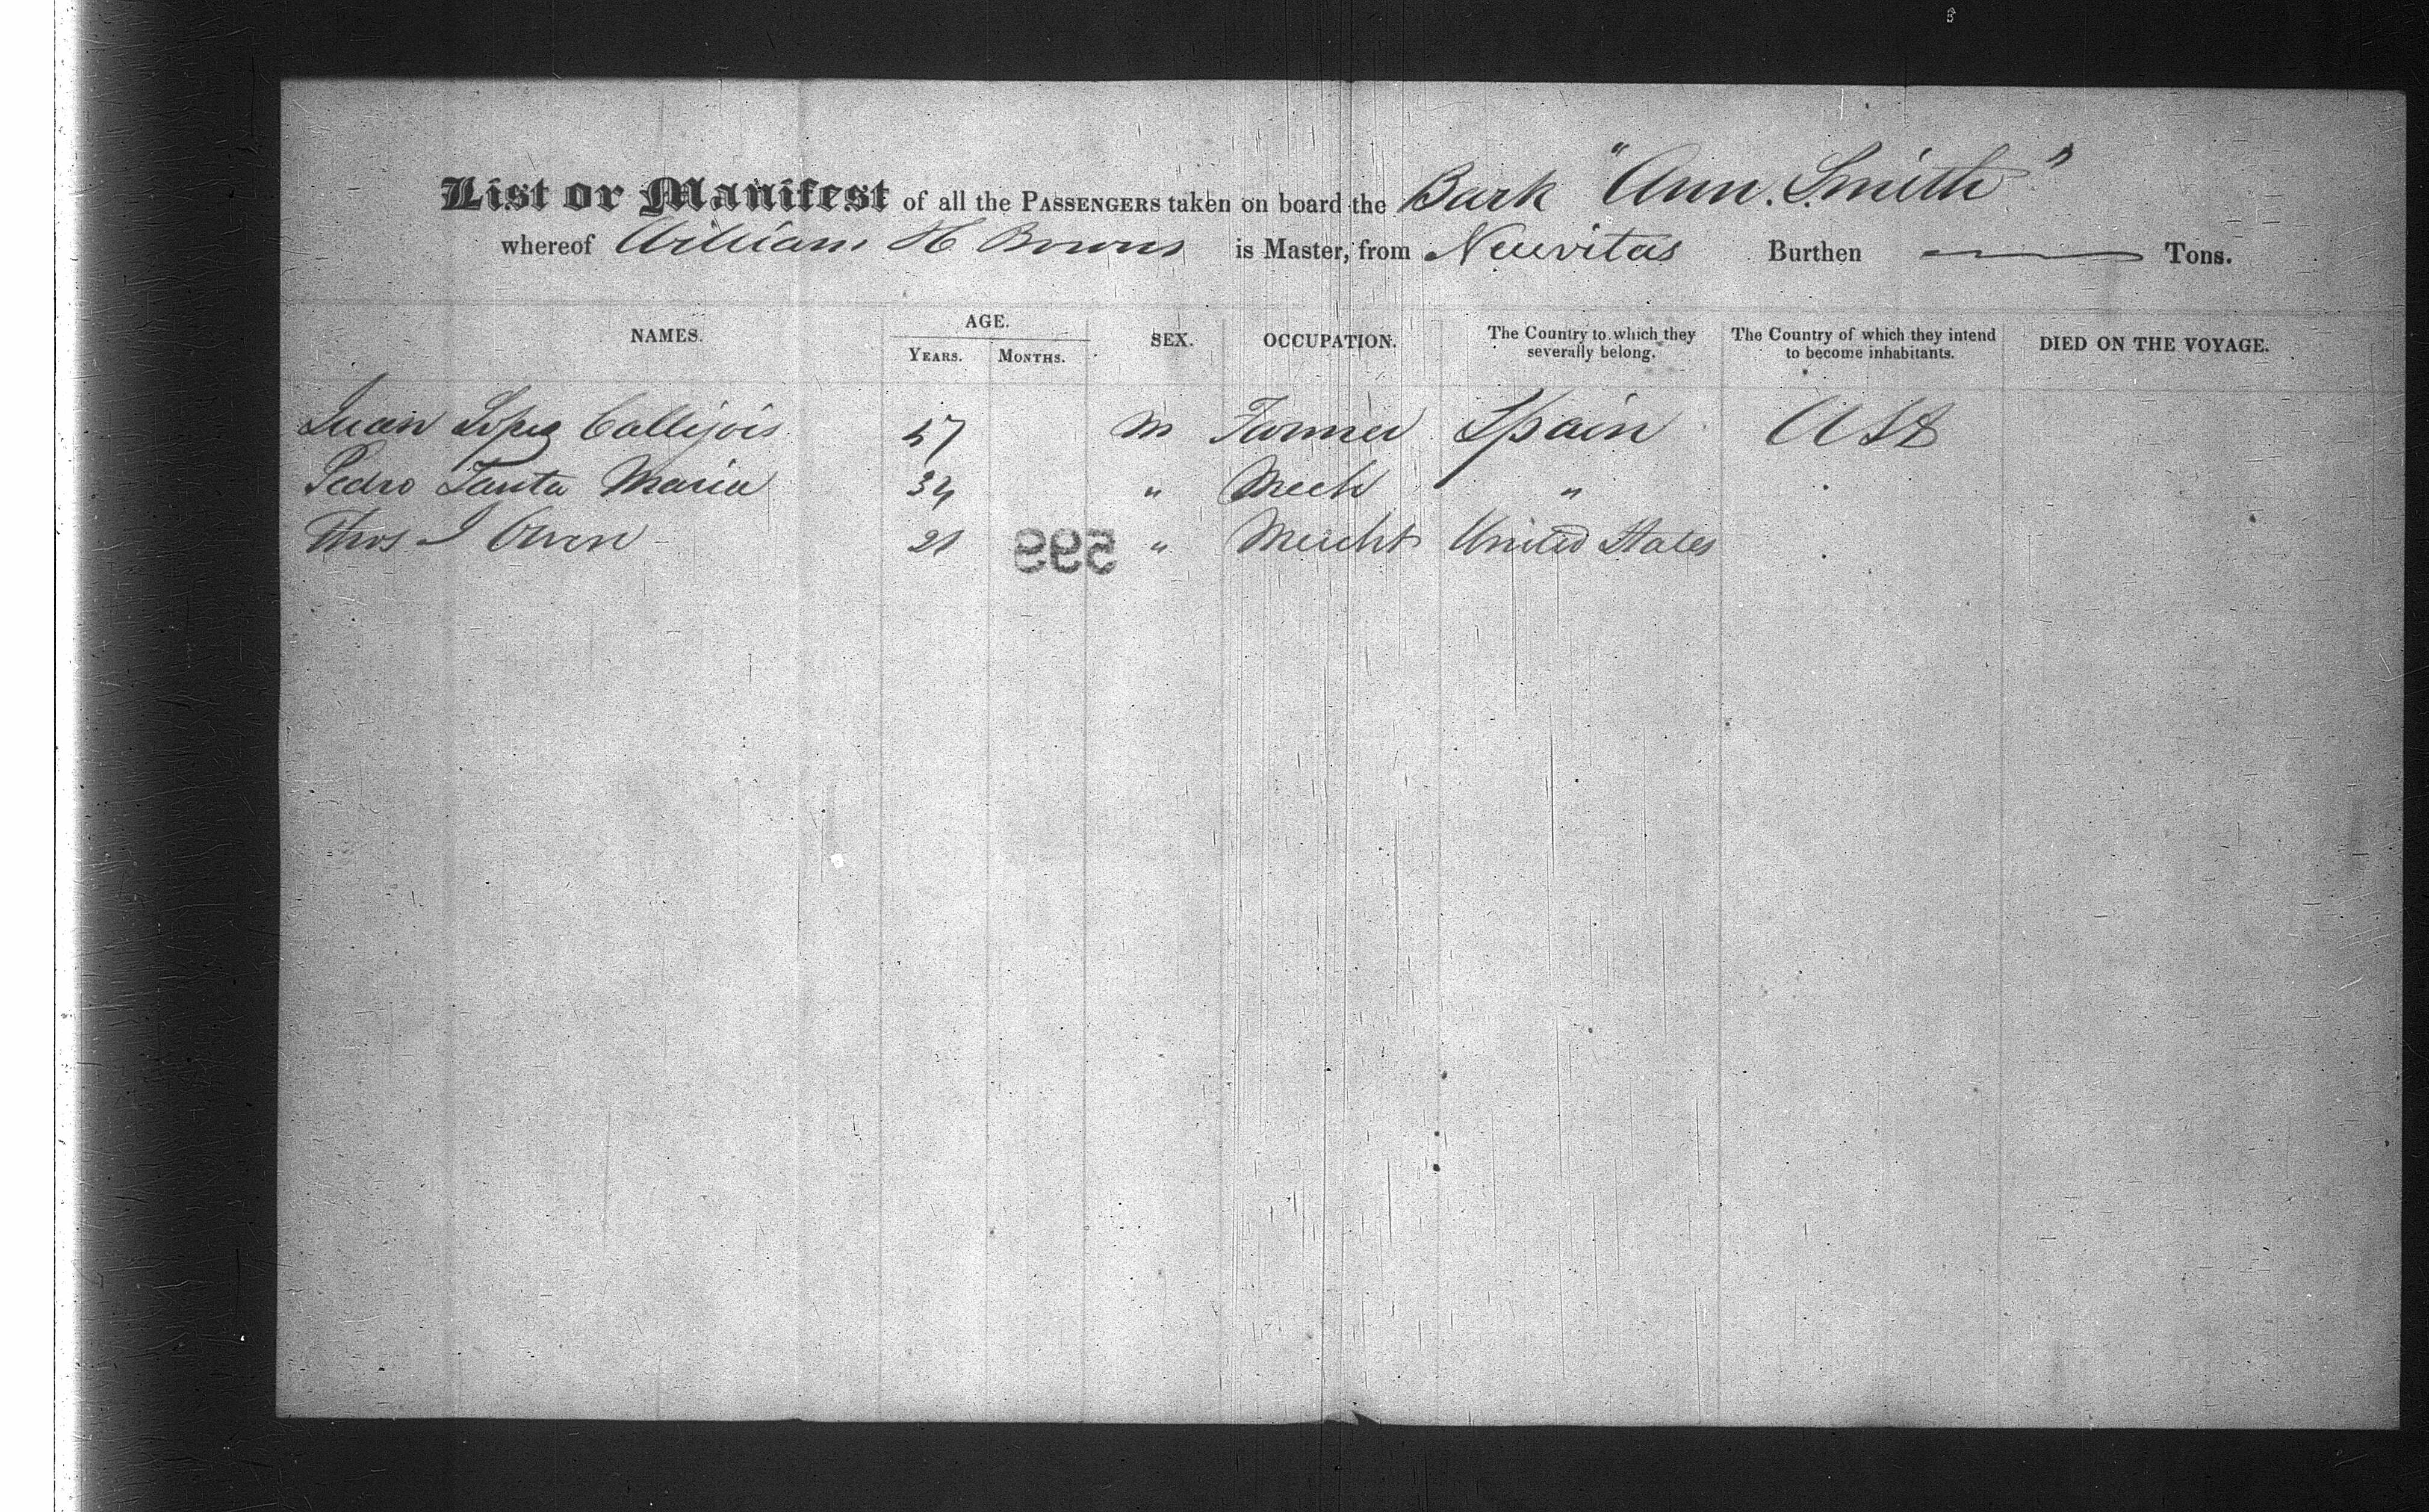 List or Manifest of all the PASSENGERS taken on board the Bark "Ann. Smith"
whereof William H Bowns is Master, from Neuvitas Burthen Tons.
NAMES. AGE. YEARS. MONTHS. SEX. OCCUPATION. The Country to which they severally belong. The Country of which they intend to become inhabitants. DIED ON THE VOYAGE.
Juan Lopez 47 M Farmer Spain
Pedro Santa Maria 34 " Mech "
Thos J Owen 21 " Mercht United States
599